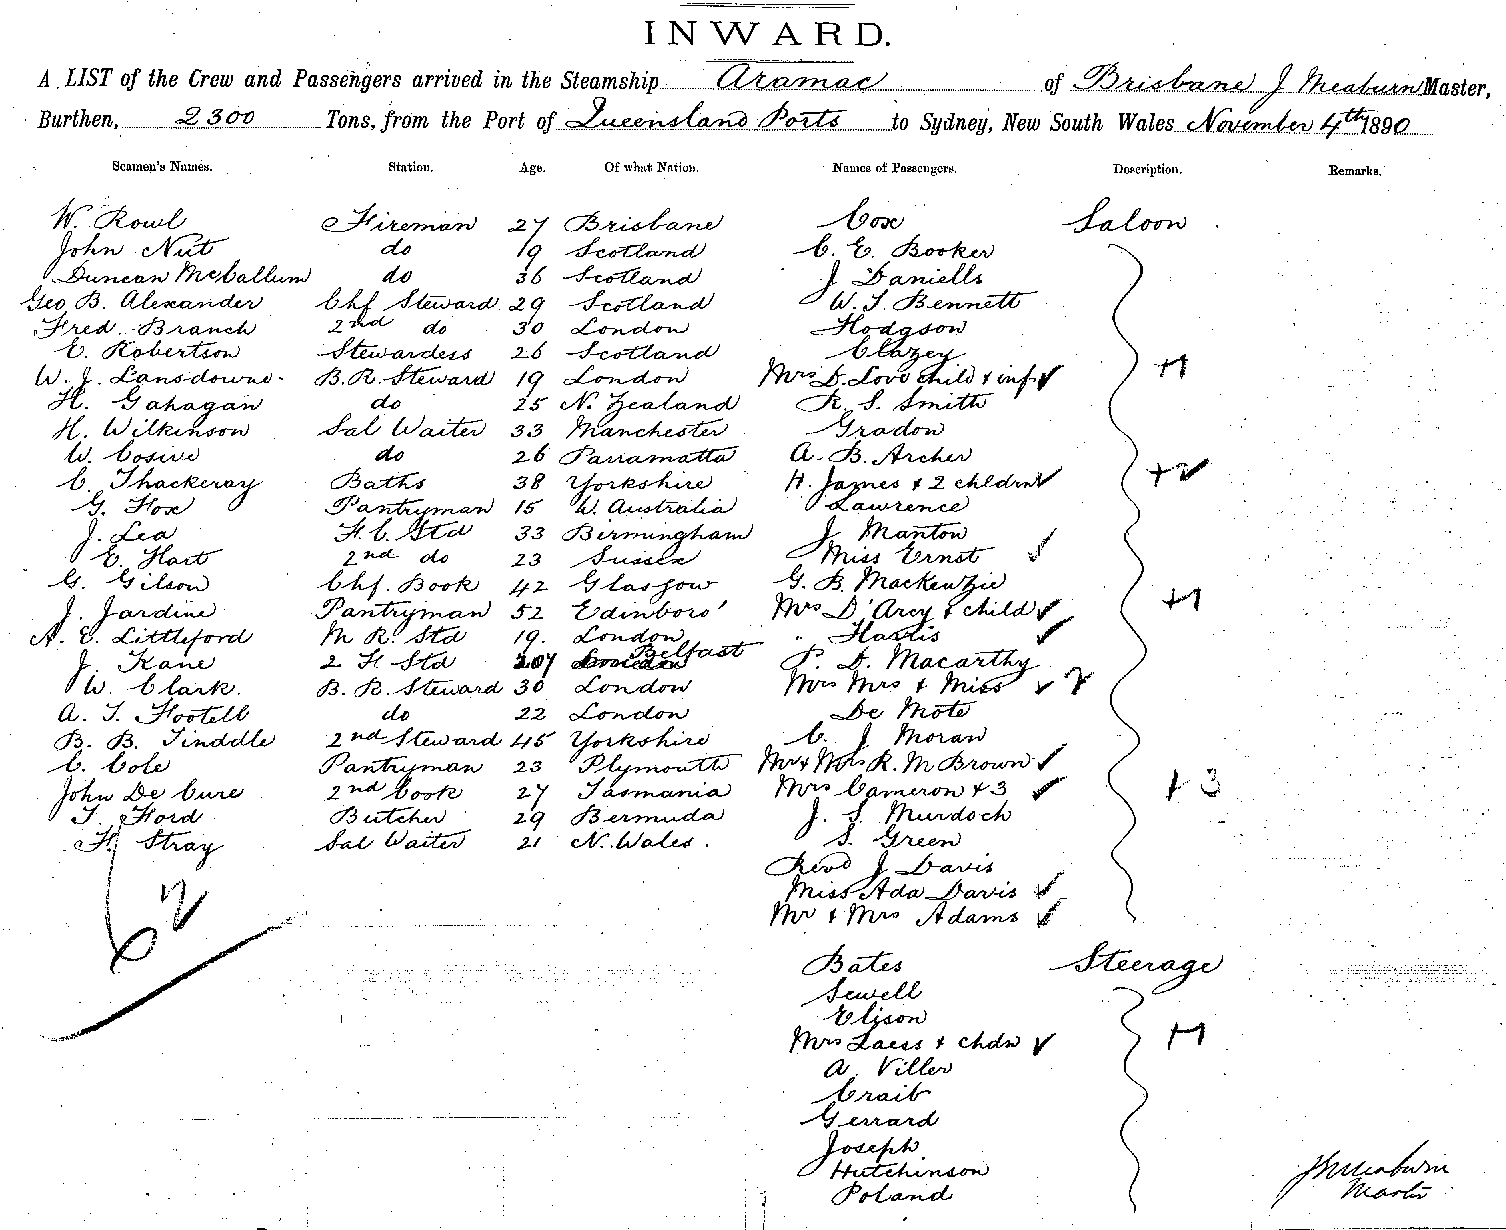 INWARD.
A LIST of the Crew and Passengers arrived in the Steamship Aramac of Brisbane J Meaburn Master,
Burthen, 2300 Tons, from the Port of Queensland Ports to Sydney, New South Wales November 4th 1890
Seamen's Names. Station. Age. Of what Nation. Names of Passengers. Description. Remarks.
W. Rowl Fireman 27 Brisbane Cox Saloon
John Nut do 19 Scotland C. E. Booker
Duncan McCallum do 36 Scotland J Daniells
Geo B. Alexander Chf Steward 29 Scotland W. T. Bennett
Fred Branch 2nd do 30 London Hodgson
E. Robertson Stewardess 26 Scotland Clazey
W. J. Lansdowne B. R. Steward 19 London Mrs D. Love child & inf +1
H. Gahagan do 25 N. Zealand R S. Smith
H. Wilkinson Sal Waiter 33 Manchester Gradon
W. Cosive do 26 Parramatta A. B. Archer
C. Thackeray Baths 38 Yorkshire H. James & 2 chldrn +2
G. Fox Pantryman 15 W. Australia Lawrence
J. Lea F. C. Std 33 Birmingham J Manton
E. Hart 2nd do 23 Sussex Miss Ernst
G. Gilson Chf. Book 42 Glasgow G. B. Mackenzie
J. Jardine Pantryman 52 Edinboro' Mrs D'Arcy & child +1
A. E. Littleford M R. Std 19. London " Harris
J. Kane 2 F Std Belfast P. D. Macarthy
W. Clark. B. R. Steward 30 London Mrs & Miss
A. T. Footell do 22 London De Mote
B. B. Tinddle 2nd Steward 45 Yorkshire C. J Moran
C. Cole Pantryman 23 Plymouth Mr & Mrs R. M Brown
John De Cure 2nd Cook 27 Tasmania Mrs Cameron & 3 + 3
T. Ford Butcher 29 Bermuda J. S. Murdoch
F. Stray Sal Waiter 21 N. Wales. S. Green
Revd J. Davis
Miss Ada Davis
Mr & Mrs Adams
62
Bates Steerage
Sewell
Elison
Mrs Laess & chdn +1
A. Viller
Crait
Gerrard
Joseph
Hutchinson
Poland
J Meaburn
Master